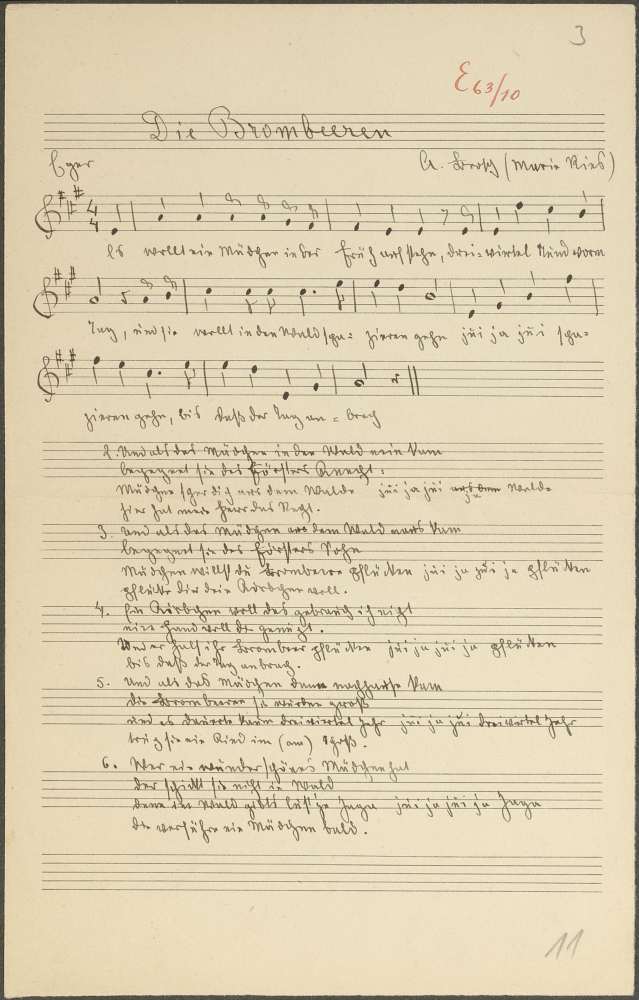 3
E 63/10
Die Brombeeren
Eger
A. Brosch (Marie Ries)
4
4
Es wollt ein Mädchen in der Früh aufstehn, drei-viertel Stund vorm
Tag, und sie wollt in den Wald spa- zieren gehn jui ja jui spa-
zieren gehn, bis daß der Tag an- brach
2. Und als das Mädchen in den Wald nein kam
begegnet sie des Försters Knecht:
Mädchen scher dich aus dem Walde jui ja jui Walde
hier hat mein Herr das Recht.
3. Und als das Mädchen aus dem Wald naus kam
begegnet sie des Försters Sohn
Mädchen willst du Brombeere pflücken jui ja jui ja pflücken
pflücke dir dein Körbchen voll.
4. Ein Körbchen voll das gebrauch ich nicht
eine Hand voll die genügt.
Und er half ihr Brombeer pflücken jui ja jui ja pflücken
bis daß der Tag anbrach.
5. Und als das Mädchen dann nachhause kam
die Brombeeren sie wurden groß
und es dauerte kaum dreiviertel Jahr jui ja jui dreiviertel Jahr
trug sie ein Kind im (am) Schoß.
6. Wer ein wunderschönes Mädchen hat
der schickt sie nicht in Wald
denn im Wald gibts lust'ge Jaga jui ja jui ja Jaga
die verführn ein Mädchen bald.
11